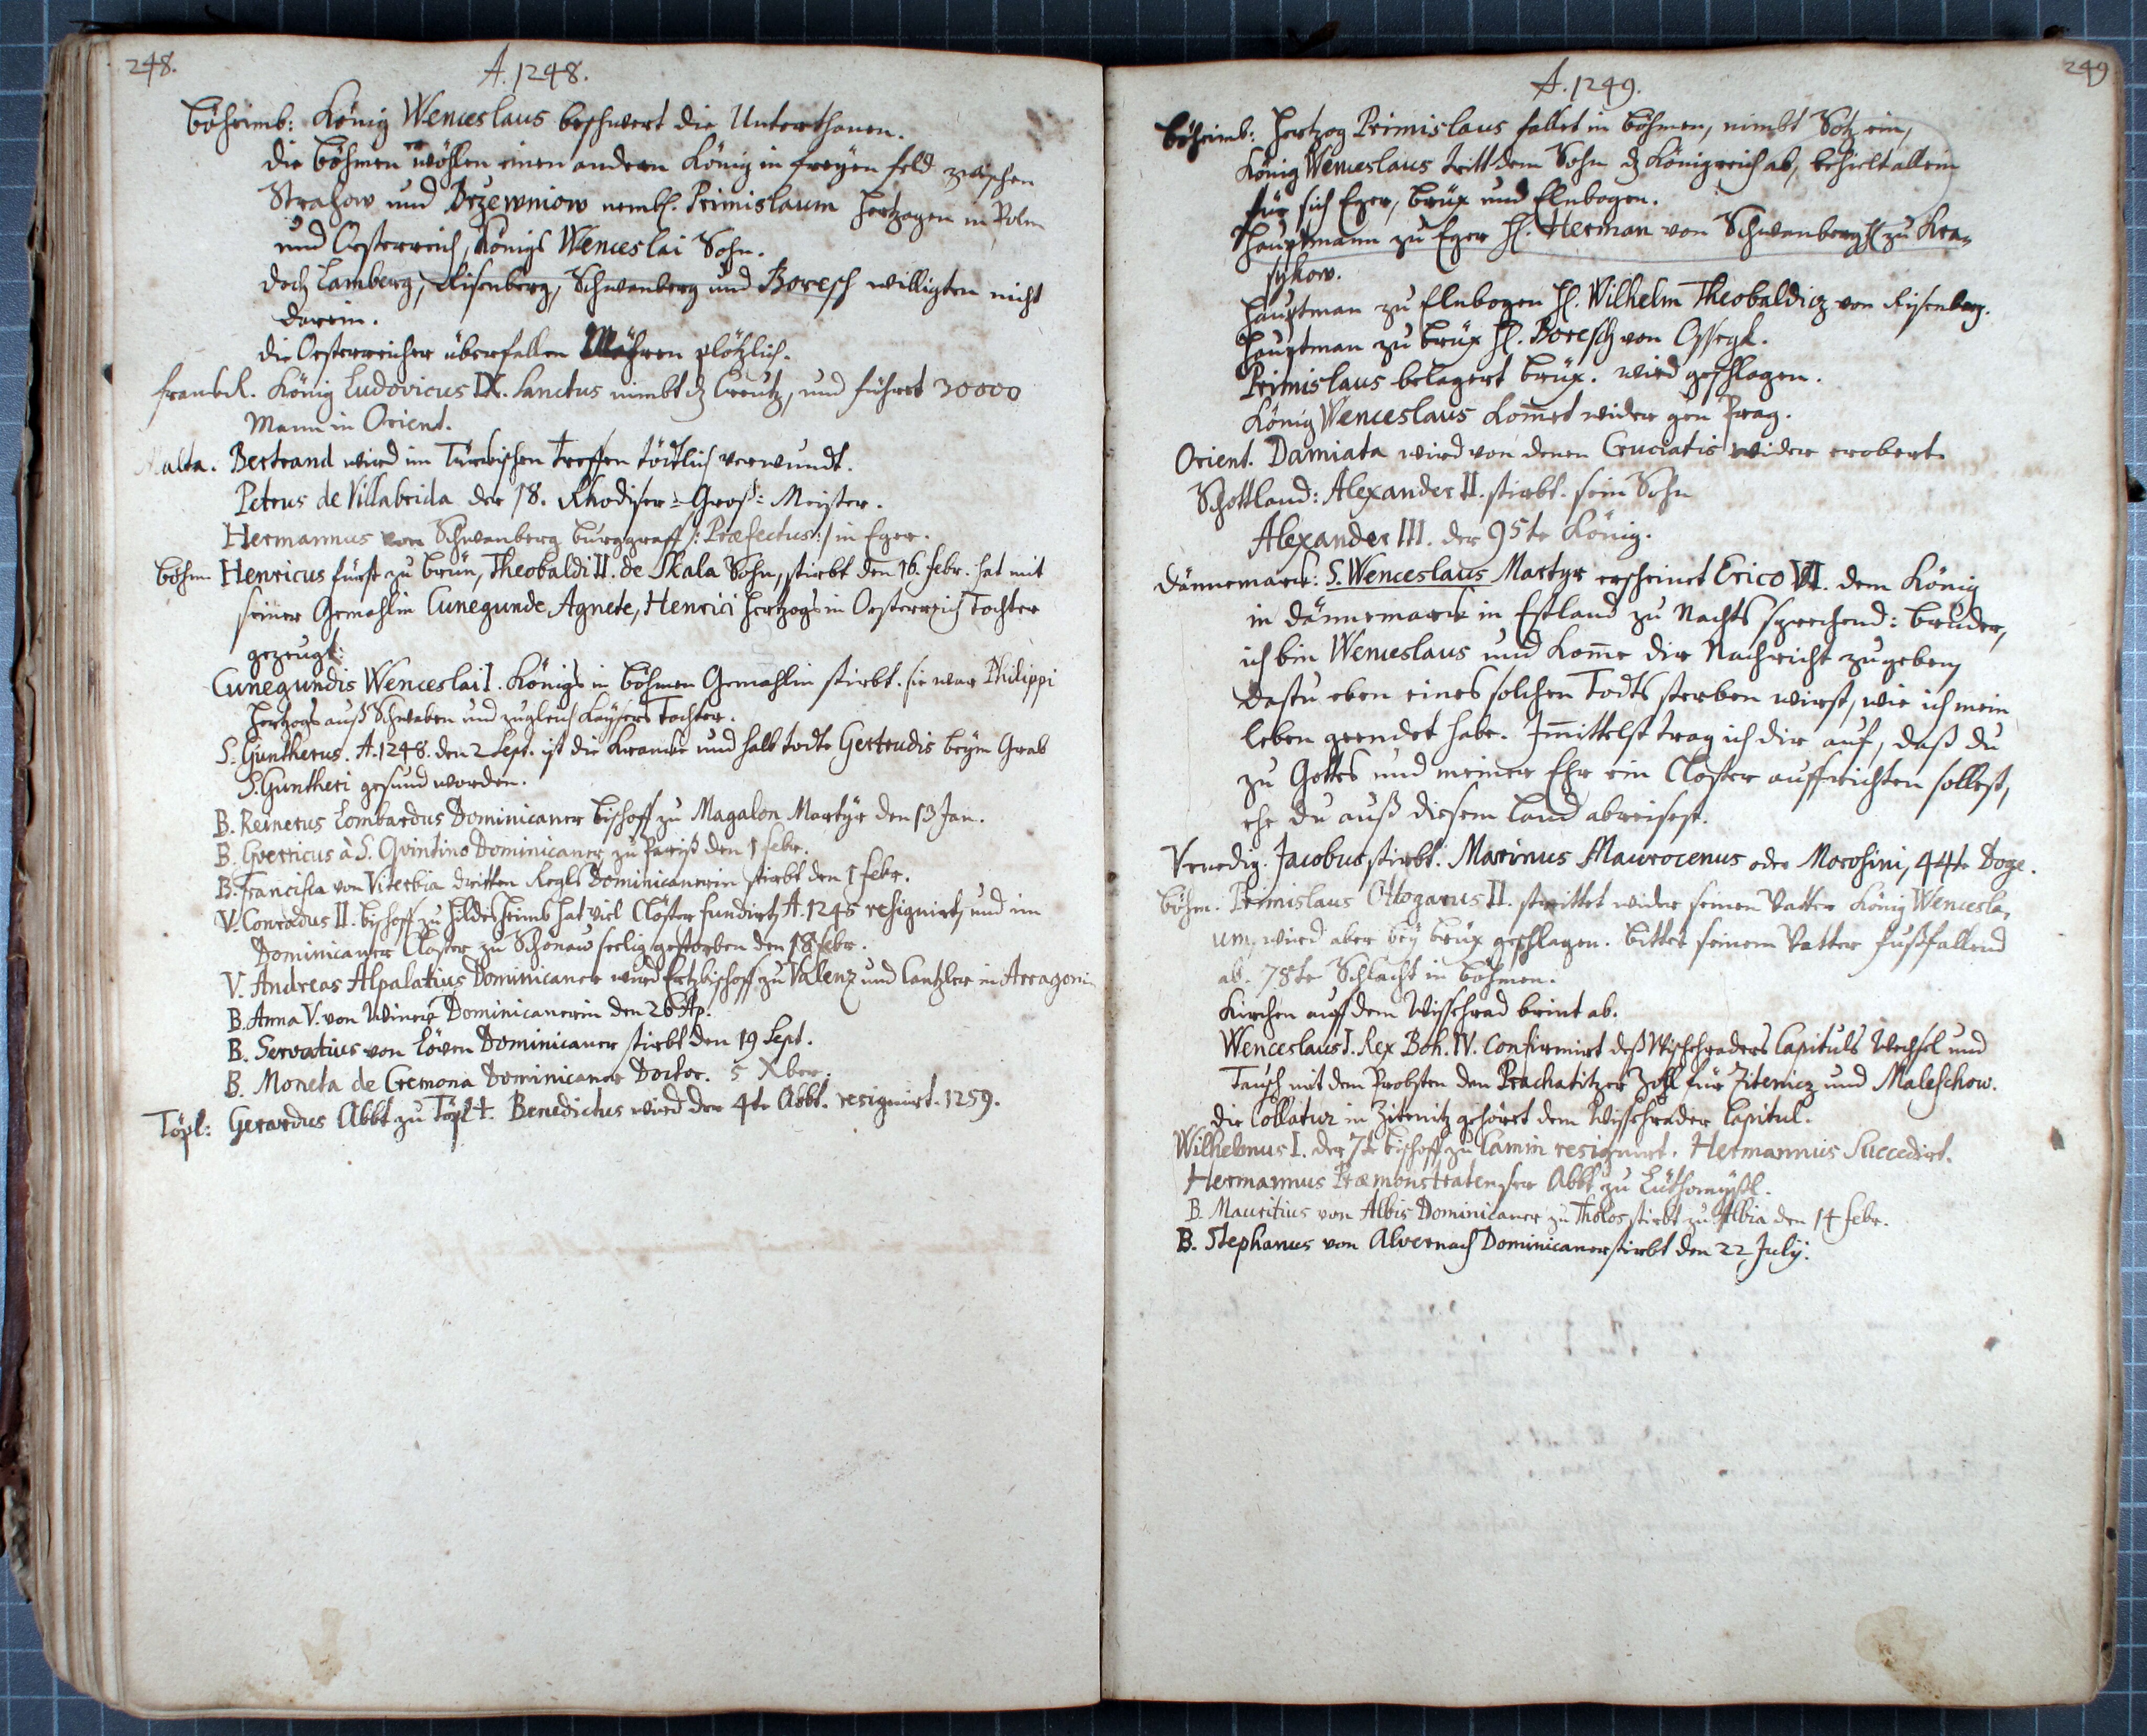 248.
A. 1248.
Böheimb: König Wenceslaus beschwert die Unterthanen.
die Böhmen erwöhlen einen andern König in freyen feld zwischen
Strahow und Brzewniow nembl. Primislaum Hertzogen in Polen
und Oesterreich, Königs Wenceslai Sohn.
doch Lamberg, Risenberg, Schwanberg und Boresch willigten nicht
darein.
die Oesterreicher überfallen Mähren plötzlich.
Franckr. König Ludovicus IX. Sanctus nimbt dz Creutz, und führet 30000
Mann in Orient.
Malta. Bertrand wird im Türckischen treffen tödtlich verwundt.
Petrus de Villabrida der 18. Rhodiser-Gros: Meister.
Hermannus von Schwanberg Burggraff /: Præfectus :/ in Eger.
Böhm. Henricus fürst zu Brün, Theobaldi II. de Skala Sohn, stirbt den 16. febr. hat mit
seiner Gemahlin Cunegunde Agnete, Henrici Hertzogs in Oesterreich Tochter
gezeugt:
Cunegundis Wenceslai I. Königs in Böhmen Gemahlin stirbt. sie war Philippi
Hertzogs auß Schwaben und zugleich Kaysers Tochter.
S. Guntherus. A. 1248. den 2 Sept. ist die Krancke und halb todte Gertrudis beym Grab
S. Guntheri gesund worden.
B. Reinerus Lombardus Dominicaner Bischoff zu Magalon Martyr den 13 Jan.
B. Gverricus à S. Qvintino Dominicaner zu Pariß den 1 febr.
B. Francisca von Viterbia dritten Regls Dominicanerin stirbt den 1 febr.
V. Conradus II. bischoff zu Hildesheimb hat viel Clöster fundirt, A. 1245 resignirt, und im
Dominicaner Closter zu Schönaw seelig gestorben den 18 febr.
V. Andreas Alpalatius Dominicaner wird Ertzbischoff zu Valenz und Cantzler in Arragoni
B. Anna V. von Dominicanerin den 26 Ap.
B. Servatius von Löven Dominicaner stirbt den 19 Sept.
B. Moneta de Cremona Dominicaner Doctor. 5 Xber.
Töpl: Gerardus Abbt zu Töpl †. Benedictus wird der 4te Abbt. resignirt. 1259.
249
A. 1249.
Böheimb: Hertzog Primislaus fallet in Böhmen, nimbt Sotz ein,
König Wenceslaus tritt dem Sohn dz Königreich ab, behielt allein
für sich Eger, Brüx und Elnbogen.
Hauptmann zu Eger H. Herman von Schwanberg H. zu Kra-
sykow.
Hauptman zu Elnbogen H. Wilhelm Theobaldicz von Risenberg.
Hauptman zu Brüx H. Boresch von Ossegk.
Primislaus belagert Brüx. wird geschlagen.
König Wenceslaus kommet wider gen Prag.
Orient. Damiata wird von denen Cruciatis wider erobert.
Schottland: Alexander II. stirbt. sein Sohn
Alexander III. der 95te König.
Dännemarck: S. Wenceslaus Martyr erscheinet Erico VI. dem König
in Dännemarck in Estland zu Nachts sprechend: Bruder,
ich bin Wenceslaus und komme dir Nachricht zugeben,
dastu eben eines solchen Todts sterben wirst, wie ich mein
leben geendet habe. Immittelst trag ich dir auf, daß du
zu Gottes und meiner Ehr ein Closter auffrichten sollest,
ehe du auß diesem Land abreisest.
Venedig. Jacobus stirbt. Marinus Maurocenus oder Morosini, 44te Doge.
Böhm. Primislaus Ottogarus II. streittet wider seinen Vatter König Wencesla-
um, wird aber bey Brüx geschlagen. bittet seinem Vatter fußfallend
ab. 78te Schlacht in Böhmen.
Kirchen auf dem Wissehrad brint ab.
Wenceslaus I. Rex Boh. IV. Confirmirt deß Wischehraders Capituls Wechsel und
Tausch mit dem Probsten den Prachatitzer Zohl für Zitenicz und Maleschow.
die Collatur in Zitenitz gehöret dem Wissehrader Capitul.
Wilhelmus I. der 7te bischoff zu Camin resignirt. Hermannus Succedirt.
Hermannus Præmonstratenser Abbt zu Lüthomyßl.
B. Mauritius von Albis Dominicaner zu Tholos stirbt zu Albia den 14 febr.
B. Stephanus von Alvernach Dominicaner stirbt den 22 July.